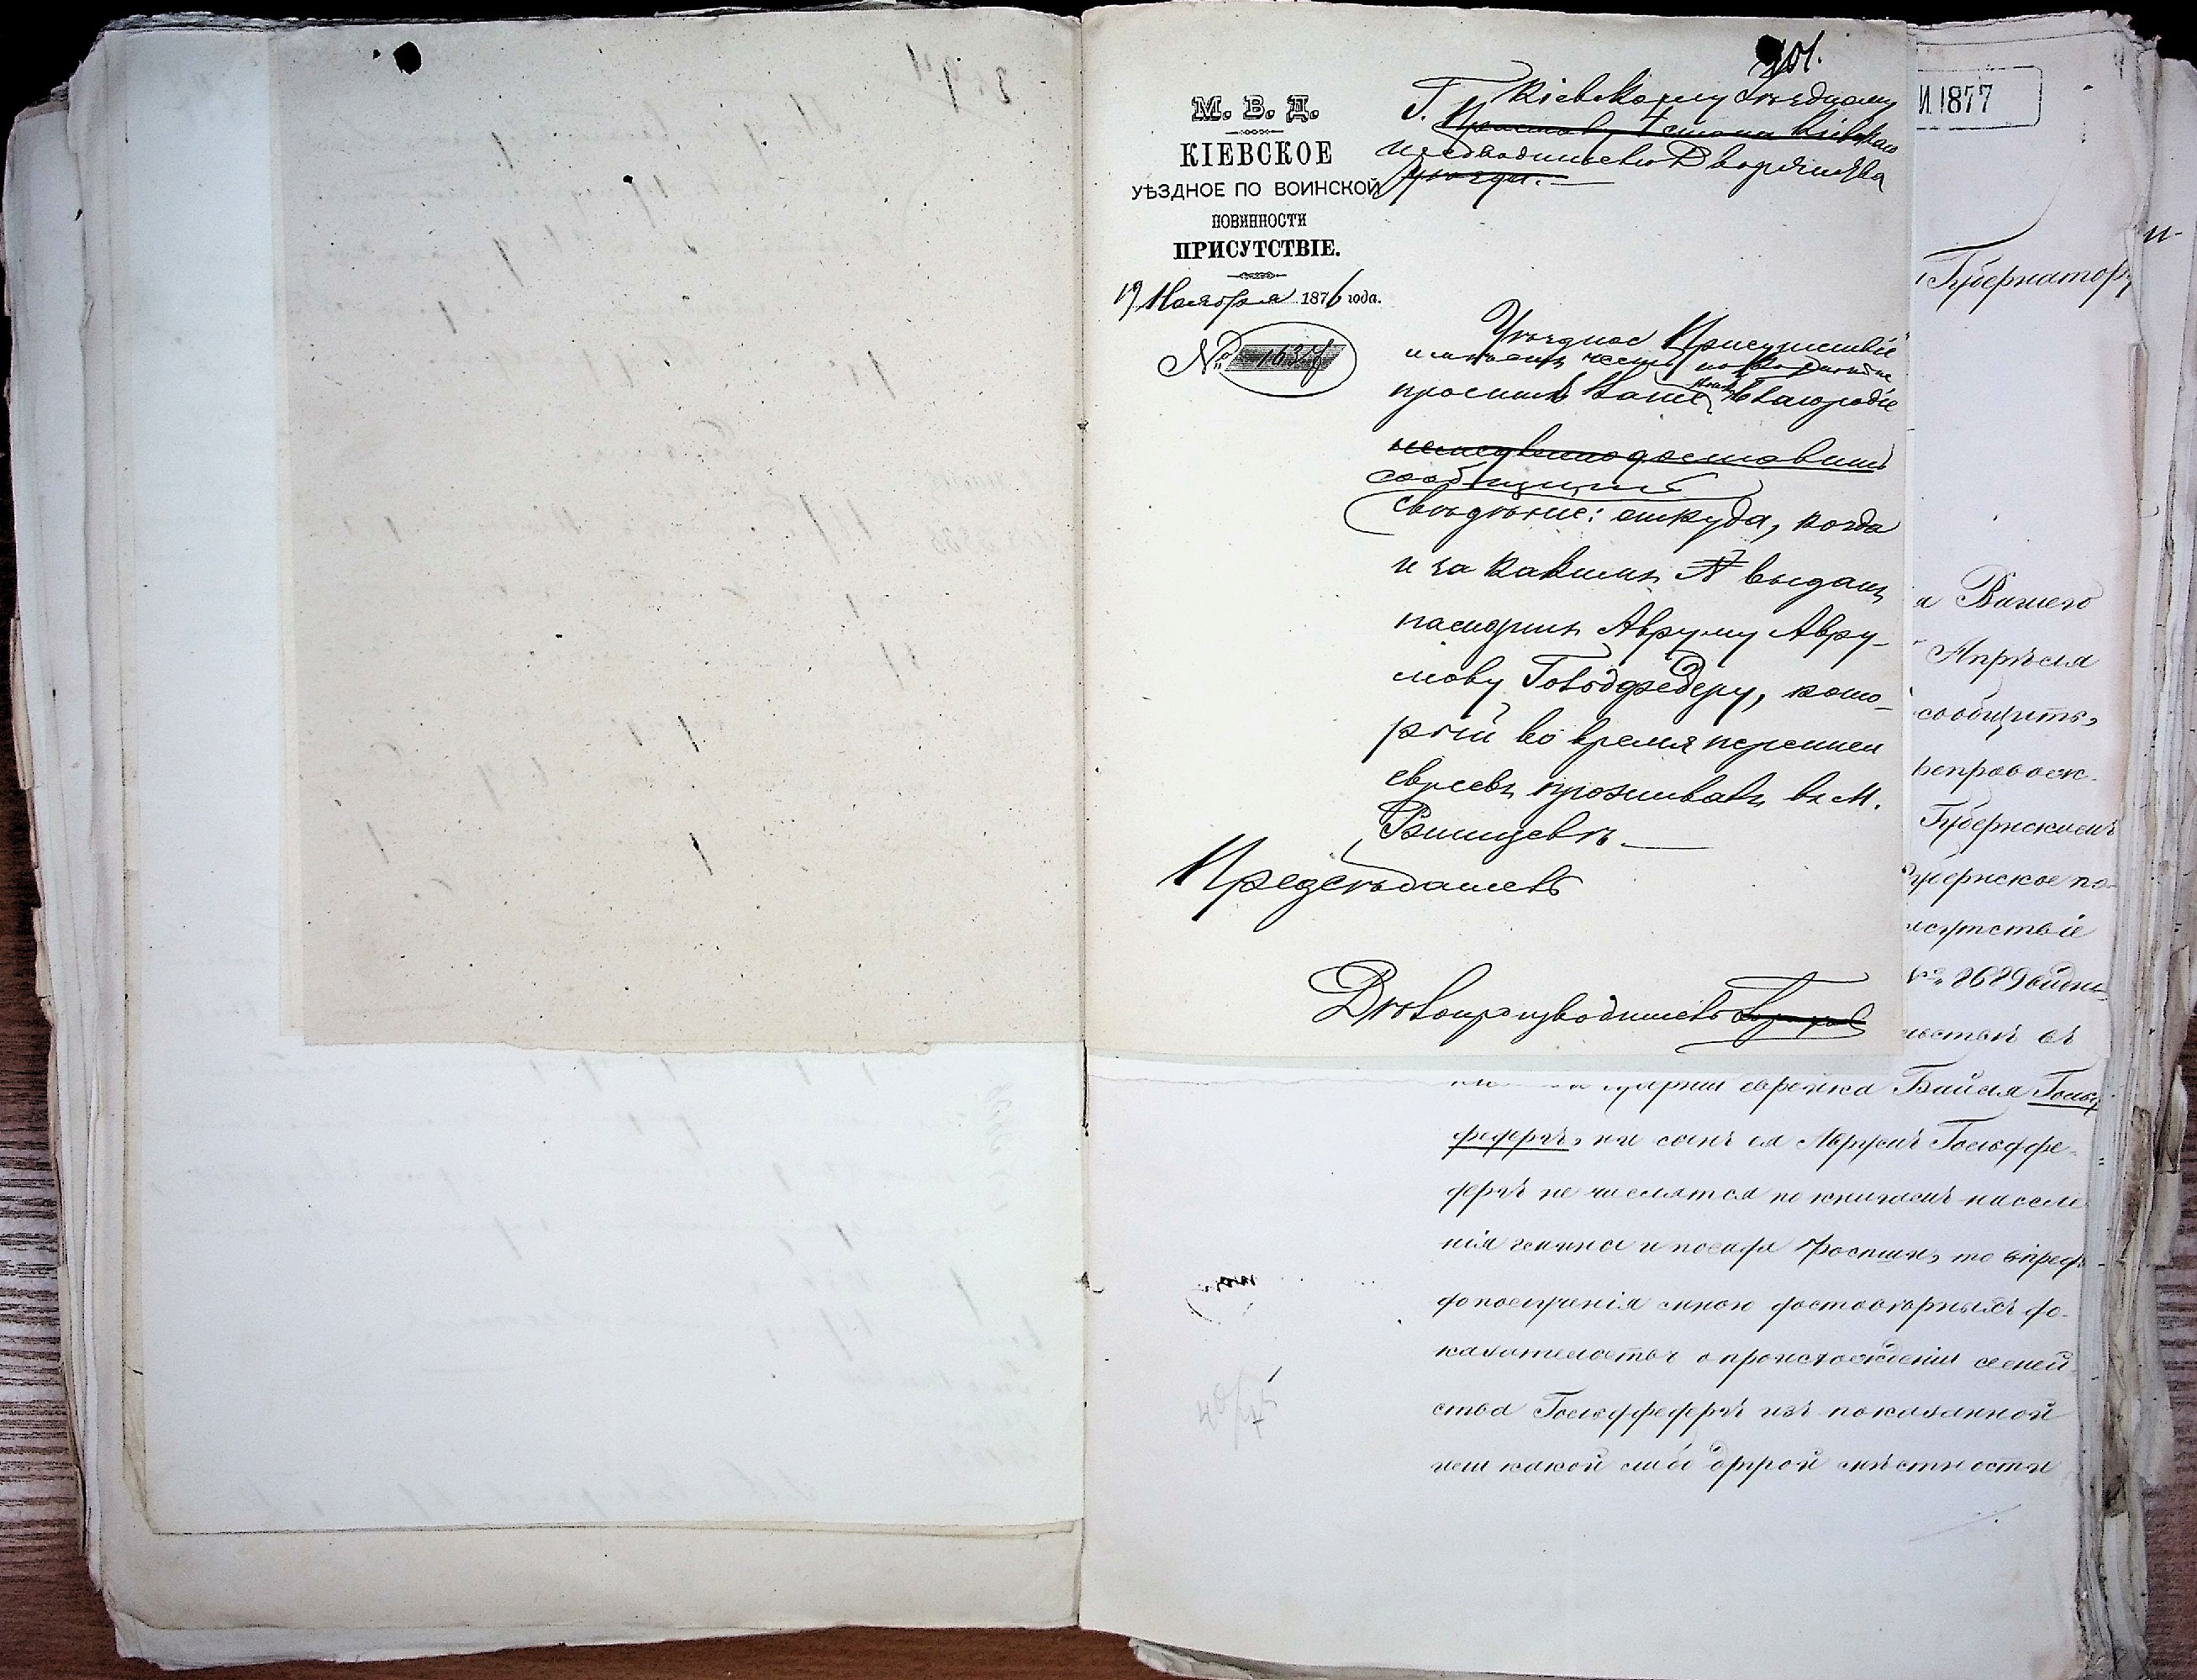 201.
М. В. Д.
КІЕВСКОЕ
УѢЗДНОЕ ПО ВОИНСКОЙ
ПОВИННОСТИ
ПРИСУТСТВІЕ.
19 Ноября 1876 года.
№ 1637
Г. Кіевскому Уѣздному
Приставу 4 стана Кіевскаго
предводителю Дворянства
уѣзда.
Уѣздное Присутствіе
имѣетъ честь
проситъ Ваше Благородіе
немедленно доставить
сообщить
свѣдѣніе: откуда, когда
и за какимъ № выданъ
паспортъ Авруму Авру-
мову Гольдфедеру, кото-
рый во время переписи
евреевъ проживалъ въ м.
Ржищевѣ.
Предсѣдатель
Дѣлопроизводитель
И 1877
Губернатору
а Вашего
Апрѣля
сообщить,
препровож-
Губернскимъ
Губернское по
исутствіе
№ 8689
еврейка Байля Гольд
федеръ, ни сынъ ея Аврумъ Гольдфе-
деръ не числятся по книгамъ населе
нія гмины и посада то впредь
до полученія мною достовѣрныхъ до-
казательствъ о происхожденіи семей
ства Гольдфедеръ изъ показанной
или какой либо другой мѣстности